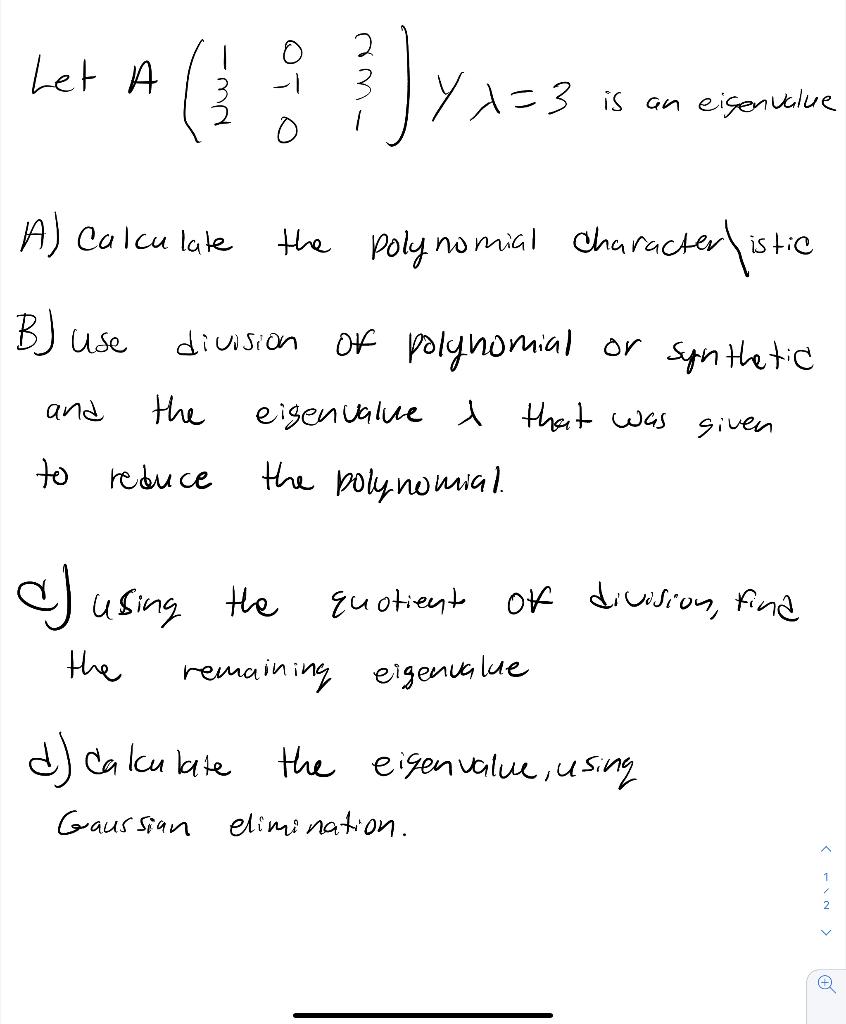 Let A ( 1 0 2 ) y λ=3 is an eigenvalue
3 -1 3
2 0 1
A) Calculate the polynomial character\istic
B) use division of polynomial or synthetic
and the eigenvalue λ that was given
to reduce the polynomial.
C) using the quotient of division, find
the remaining eigenvalue
d) Calculate the eigenvalue, using
Gaussian elimination.
1
/
2